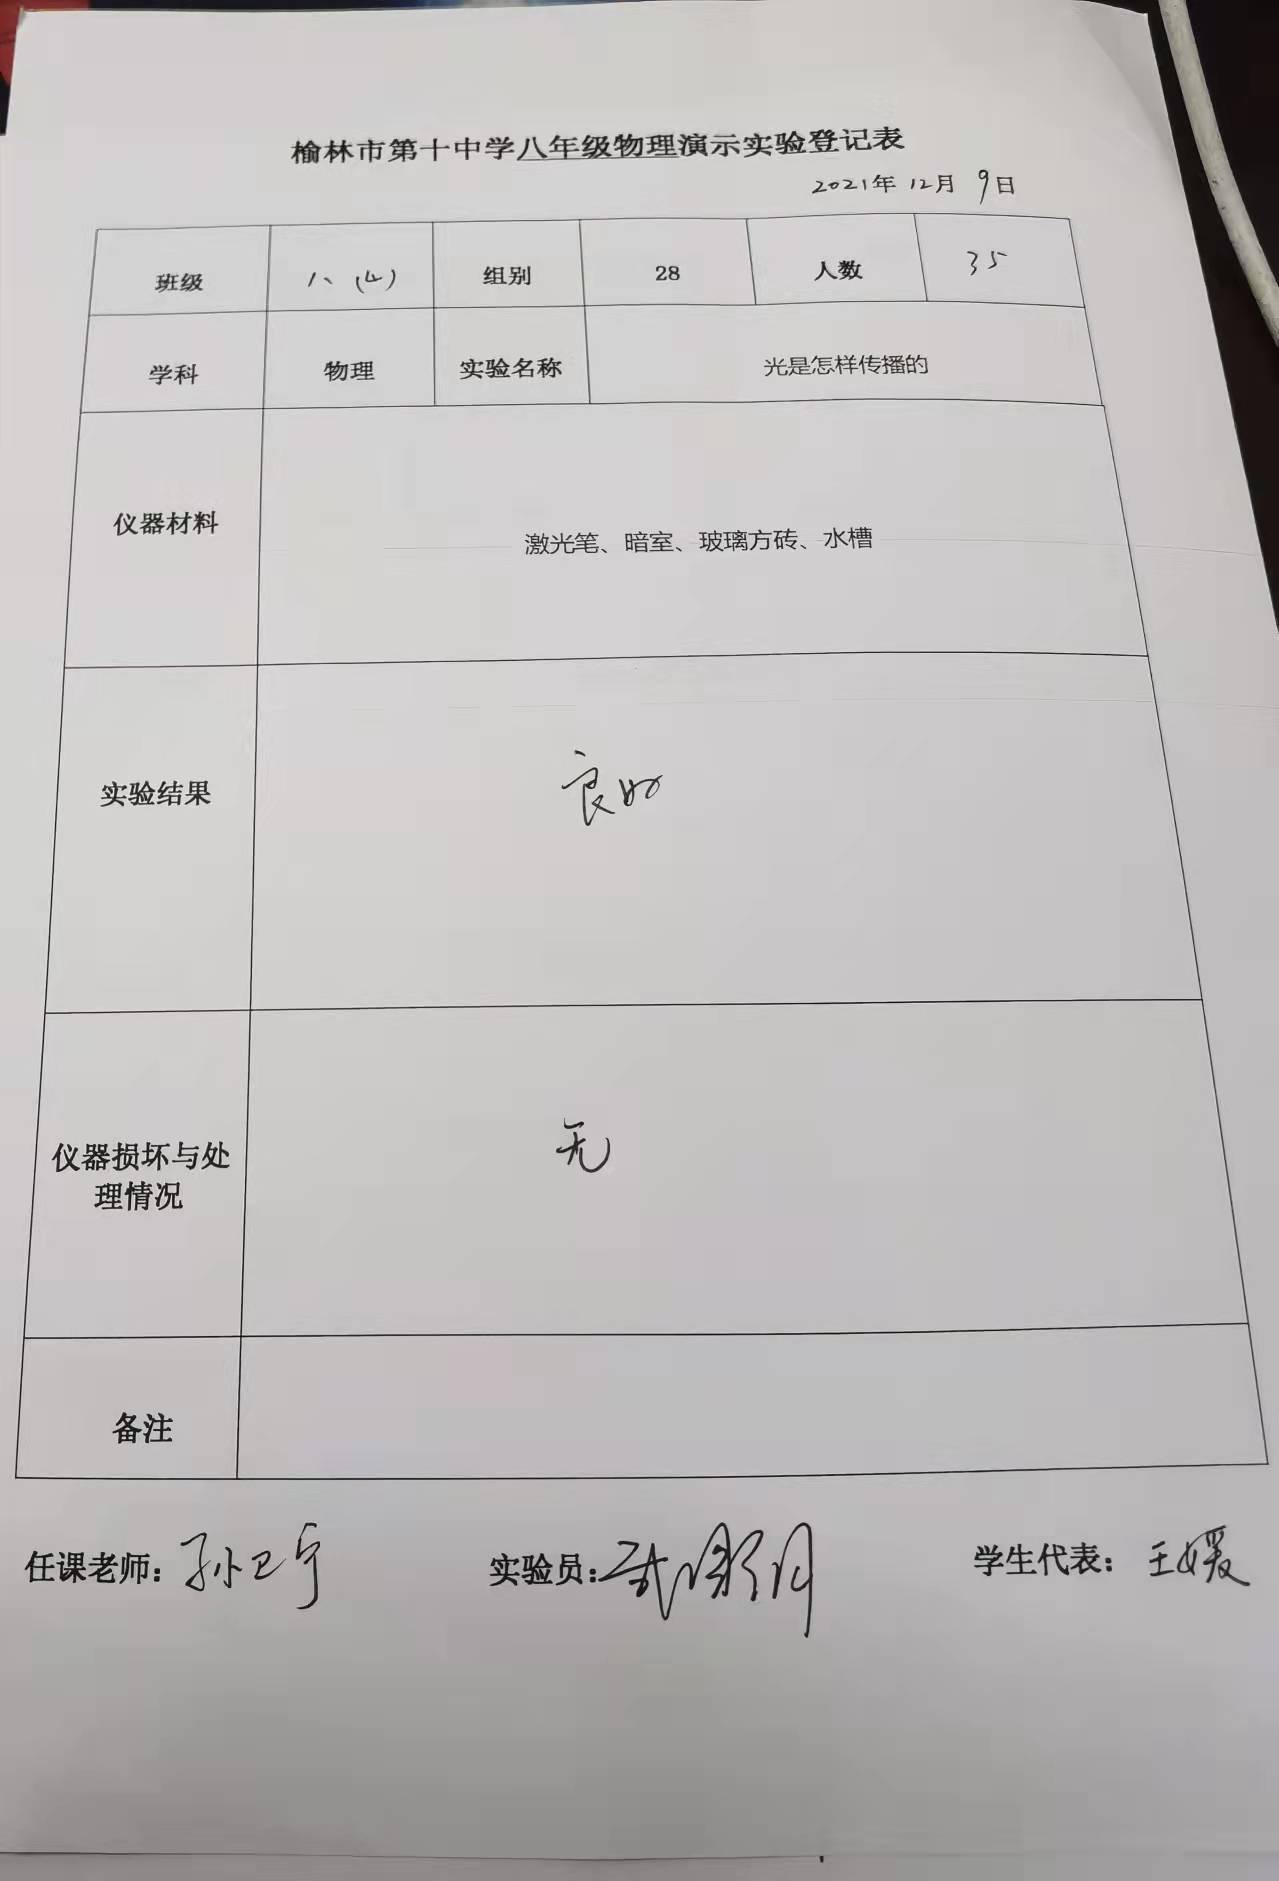 榆林市第十中学八年级物理演示实验登记表
2021年 12月 9日
班级 八(4) 组别 28 人数 35
学科 物理 实验名称 光是怎样传播的
仪器材料 激光笔、暗室、玻璃方砖、水槽
实验结果 良好
仪器损坏与处
理情况
无
备注
任课老师：孙卫宁 实验员： 学生代表：王媛